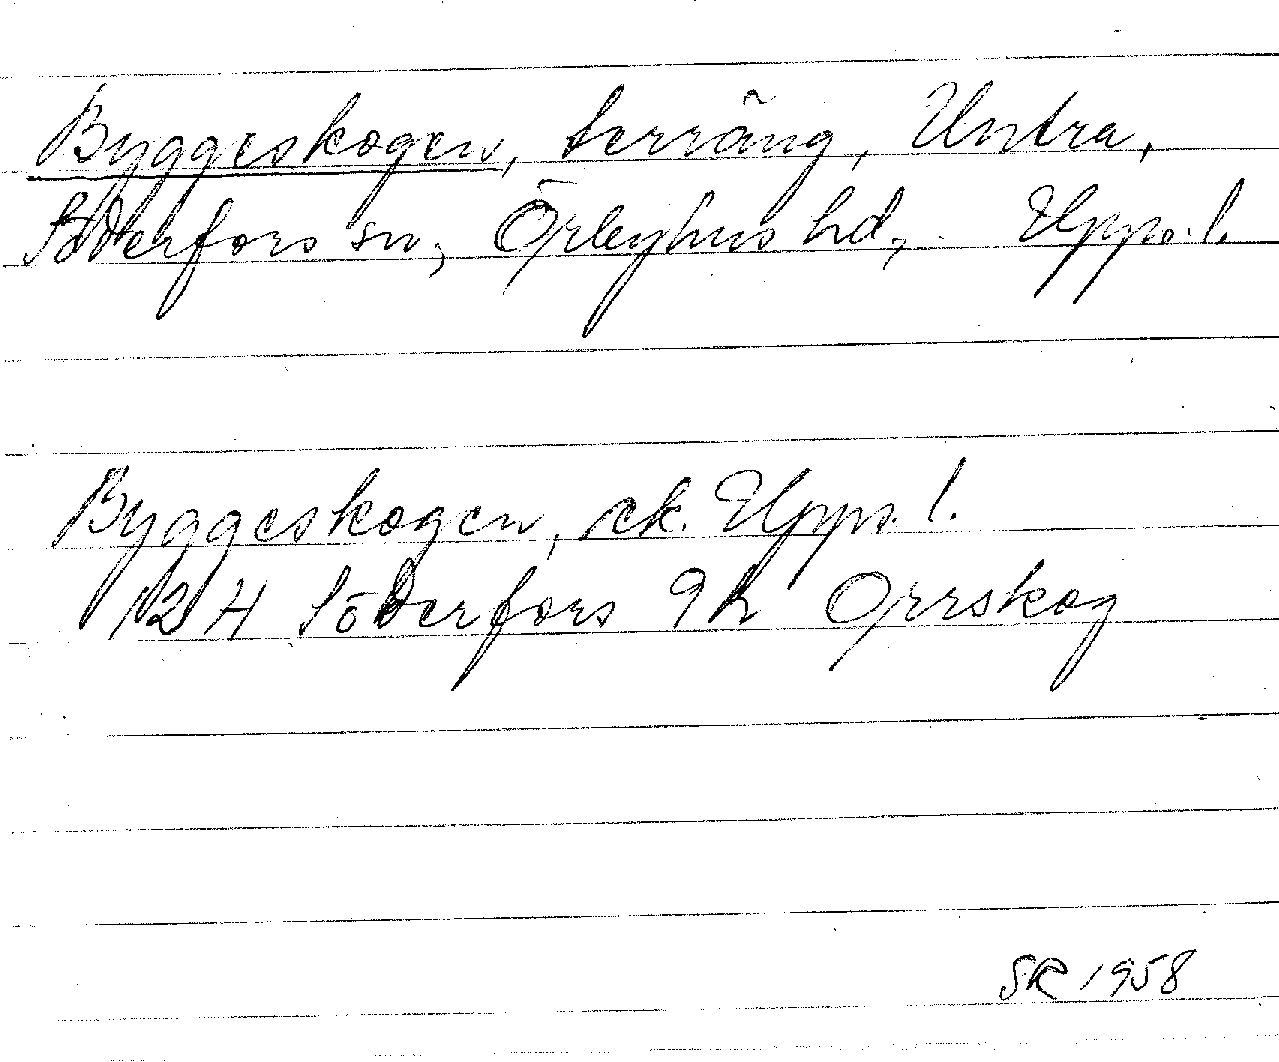 Byggeskogen, terräng, Untra,
Söderfors sn, Örbyhus hd, Upps. l.
Byggeskogen, ek. Upps. l.
12 H Söderfors 9h Orrskog
SR 1958